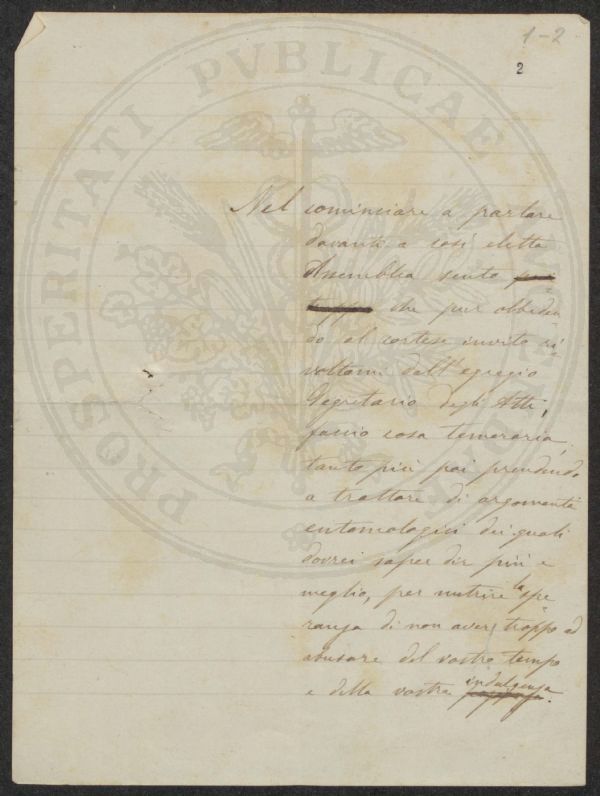 1-2
2
PROSPERITATI PVBLICAE AVGENDAE
Nel cominciare a parlare
davanti a così eletta
Assemblea sento
che pur obbeden
do al cortese invito ri-
voltomi dall'egregio
Segretario degli Atti,
faccio cosa temeraria,
tanto più poi prendendo
a trattare di argomenti
entomologici dei quali
dovrei saper dir più e
meglio, per nutrire la spe
ranza di non aver troppo ad
abusare del vostro tempo
e della vostra indulgenza.